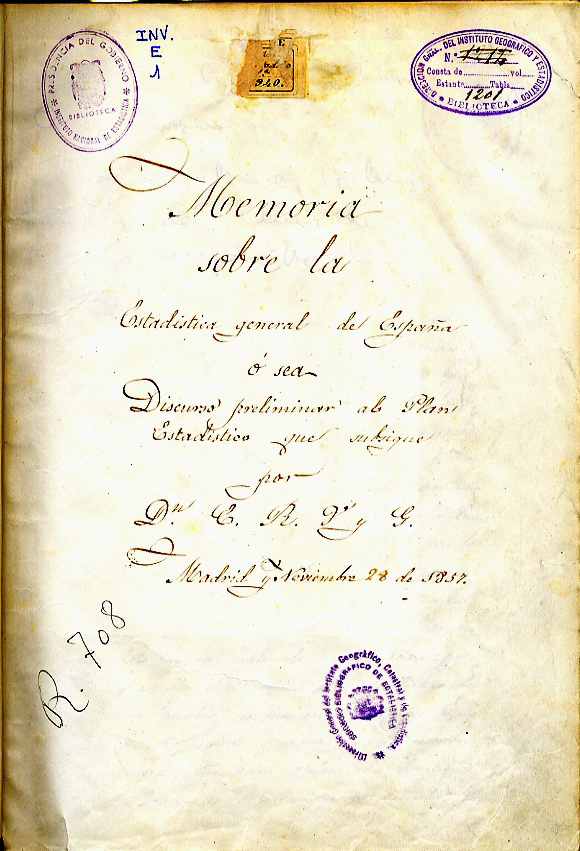 PRESIDENCIA DEL GOBIERNO
BIBLIOTECA
INSTITUTO NACIONAL DE ESTADISTICA
INV.
E
1
E
240.
DIRECCIÓN GRAL. DEL INSTITUTO GEOGRÁFICO Y ESTADÍSTICO
N.º 1212
Consta de vol.
Estante Tabla
1201
BIBLIOTECA
Memoria
sobre la
Estadistica general de España
ó sea
Discurso preliminar al Plan
Estadistico que subsigue
por
Dn. E. R. Pr y G.
Madrid y Noviembre 28 de 1857.
R. 708
Dirección General del Instituto Geográfico, Catastral y de Estadística
SERVICIO BIBLIOGRAFICO DE ESTADISTICA